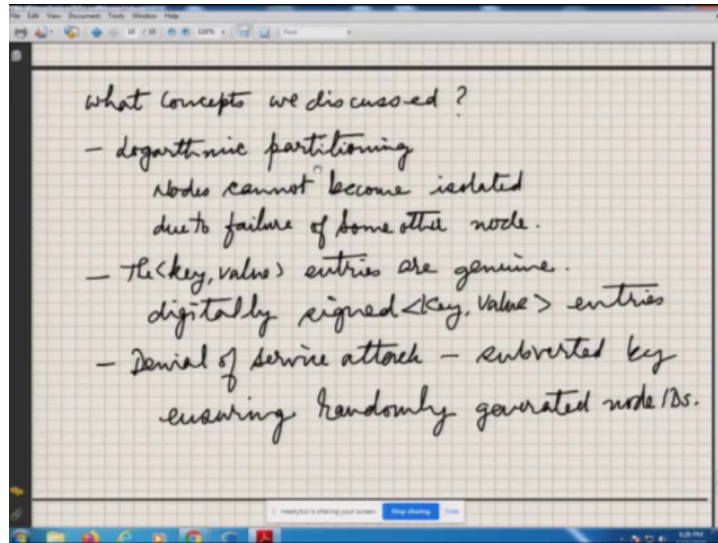 File Edit View Document Tools Window Help
10 / 10 110% Find
what concepts we discussed ?
- Logarthmic partitioning
Nodes cannot become isolated
due to failure of some other node.
- The <key, value> entries are genuine.
digitally signed <key, value> entries
- Denial of service attack - subverted by
ensuring randomly generated node IDs.
is sharing your screen. Stop sharing Hide
6:28 PM